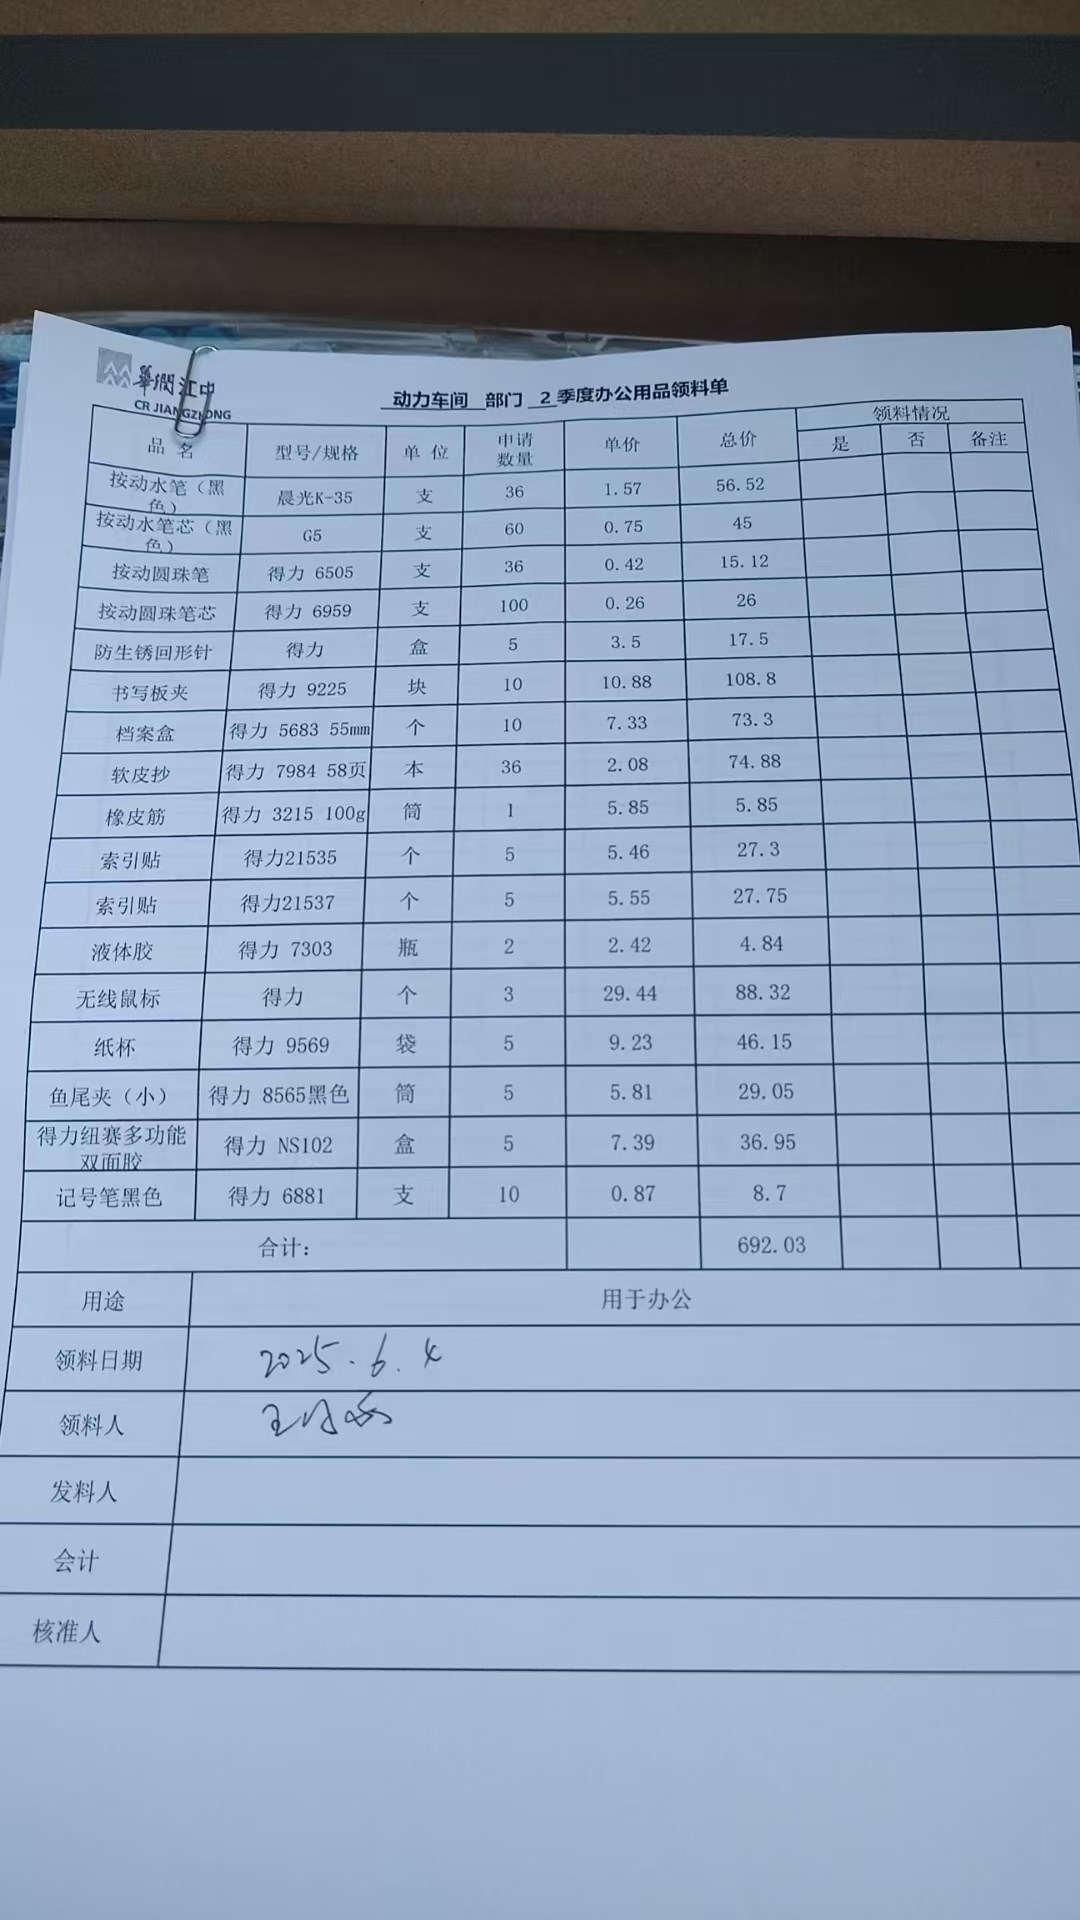 華潤江中
CR JIANGZHONG
动力车间 部门 2 季度办公用品领料单
品 名 型号/规格 单 位 申请数量 单价 总价 领料情况
是 否 备注
按动水笔（黑色） 晨光K-35 支 36 1.57 56.52
按动水笔芯（黑色） G5 支 60 0.75 45
按动圆珠笔 得力 6505 支 36 0.42 15.12
按动圆珠笔芯 得力 6959 支 100 0.26 26
防生锈回形针 得力 盒 5 3.5 17.5
书写板夹 得力 9225 块 10 10.88 108.8
档案盒 得力 5683 55mm 个 10 7.33 73.3
软皮抄 得力 7984 58页 本 36 2.08 74.88
橡皮筋 得力 3215 100g 筒 1 5.85 5.85
索引贴 得力21535 个 5 5.46 27.3
索引贴 得力21537 个 5 5.55 27.75
液体胶 得力 7303 瓶 2 2.42 4.84
无线鼠标 得力 个 3 29.44 88.32
纸杯 得力 9569 袋 5 9.23 46.15
鱼尾夹（小） 得力 8565黑色 筒 5 5.81 29.05
得力纽赛多功能双面胶 得力 NS102 盒 5 7.39 36.95
记号笔黑色 得力 6881 支 10 0.87 8.7
合计: 692.03
用途 用于办公
领料日期 2025.6.4
领料人
发料人
会计
核准人